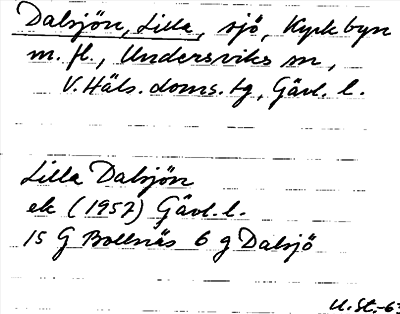 Dalsjön, Lilla, sjö, Kyrkbyn
m. fl., Undersviks sn,
V. Häls. doms. tg, Gävl. l.
Lilla Dalsjön
ek (1957) Gävl. l.
15 G Bollnäs 6 g Dalsjö
U.St.-63